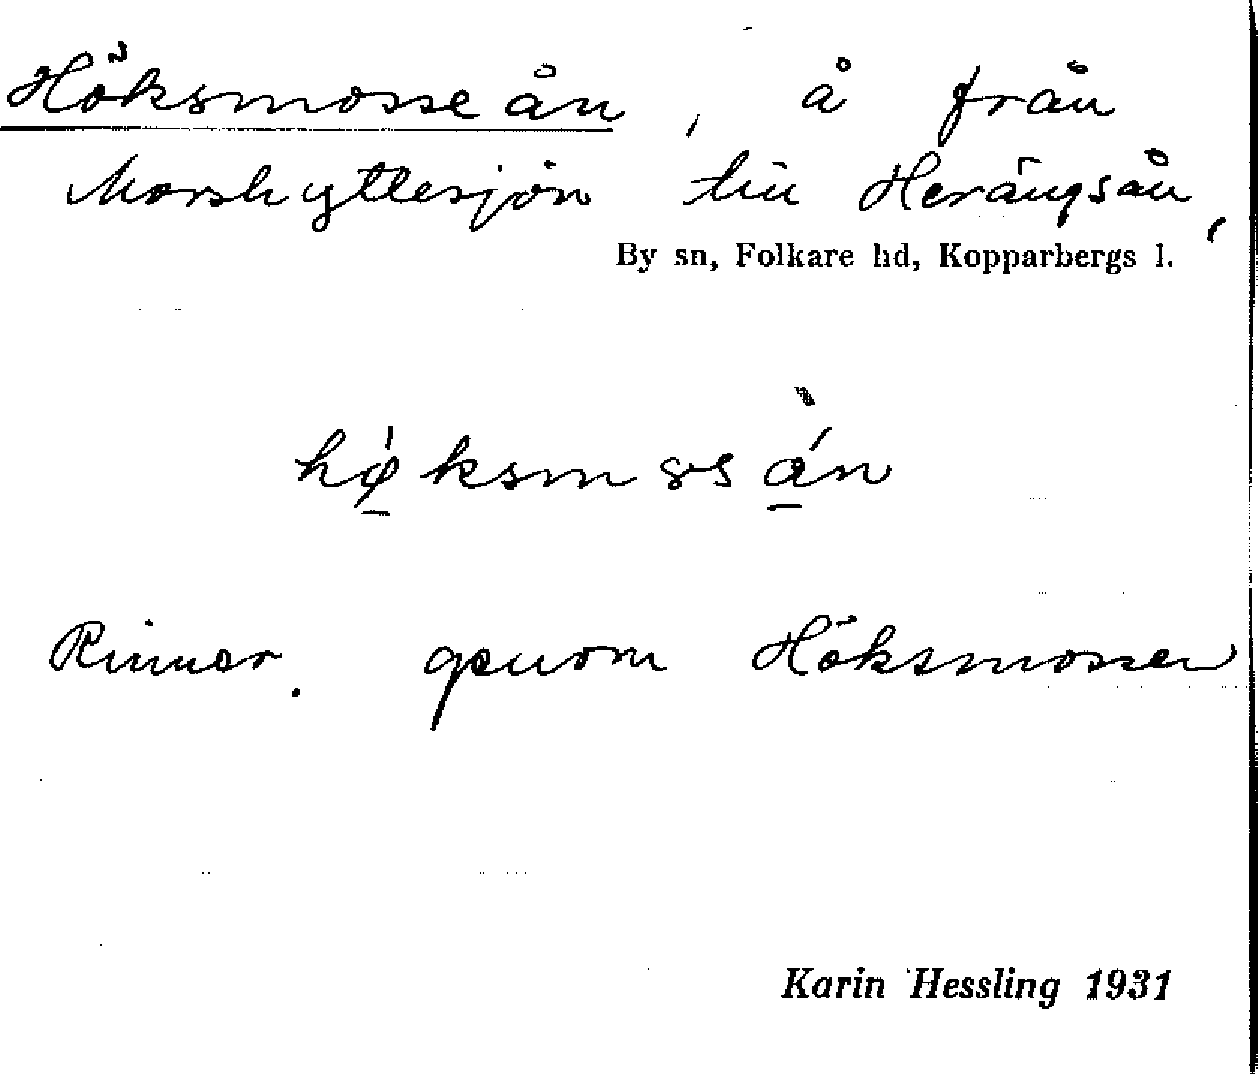 Höksmosseån, å från
Morshyttesjön till Herängsån,
By sn, Folkare hd, Kopparbergs l.
Rinner genom Höksmossen
Karin Hessling 1931